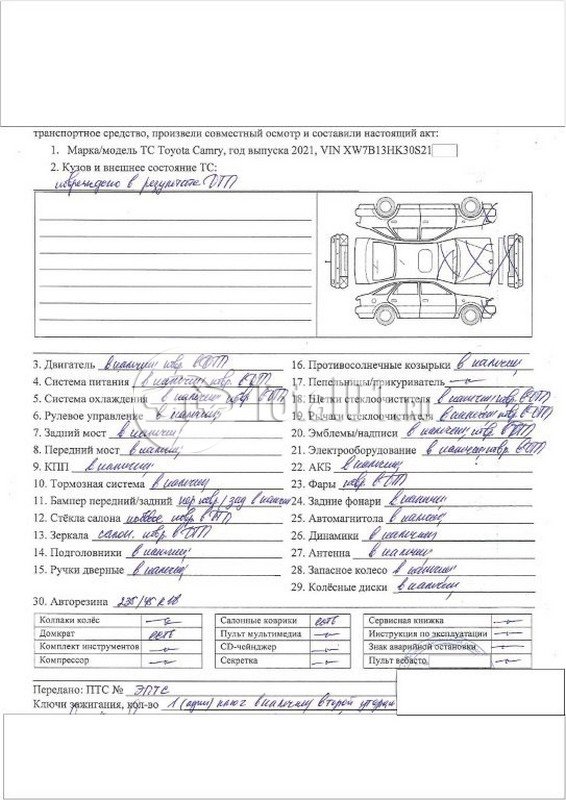 транспортное средство, произвели совместный осмотр и составили настоящий акт:
1. Марка/модель ТС Toyota Camry, год выпуска 2021, VIN XW7B13HK30S21
2. Кузов и внешнее состояние ТС:
повреждено в результате ДТП
3. Двигатель в наличии повр. в ДТП
16. Противосолнечные козырьки в наличии
4. Система питания в наличии повр. в ДТП
17. Пепельницы/прикуриватель —
5. Система охлаждения в наличии повр. в ДТП
18. Щетки стеклоочистителя в наличии повр. в ДТП
6. Рулевое управление в наличии
19. Рычаги стеклоочистителя в наличии повр. в ДТП
7. Задний мост в наличии
20. Эмблемы/надписи в наличии повр. в ДТП
8. Передний мост в наличии
21. Электрооборудование в наличии повр. в ДТП
9. КПП в наличии
22. АКБ в наличии
10. Тормозная система в наличии
23. Фары повр. в ДТП
11. Бампер передний/задний пер повр/ зад в наличии
24. Задние фонари в наличии
12. Стёкла салона лобовое повр. в ДТП
25. Автомагнитола в наличии
13. Зеркала салон. повр. в ДТП
26. Динамики в наличии
14. Подголовники в наличии
27. Антенна в наличии
15. Ручки дверные в наличии
28. Запасное колесо в наличии
29. Колёсные диски в наличии
30. Авторезина 235/45 R18
Колпаки колёс — Салонные коврики есть Сервисная книжка —
Домкрат есть Пульт мультимедиа — Инструкция по эксплуатации —
Комплект инструментов — CD-чейнджер — Знак аварийной остановки —
Компрессор — Секретка — Пульт вебасто —
Передано: ПТС № ЭПТС
Ключи зажигания, кол-во 1 (один) ключ в наличии второй утерян